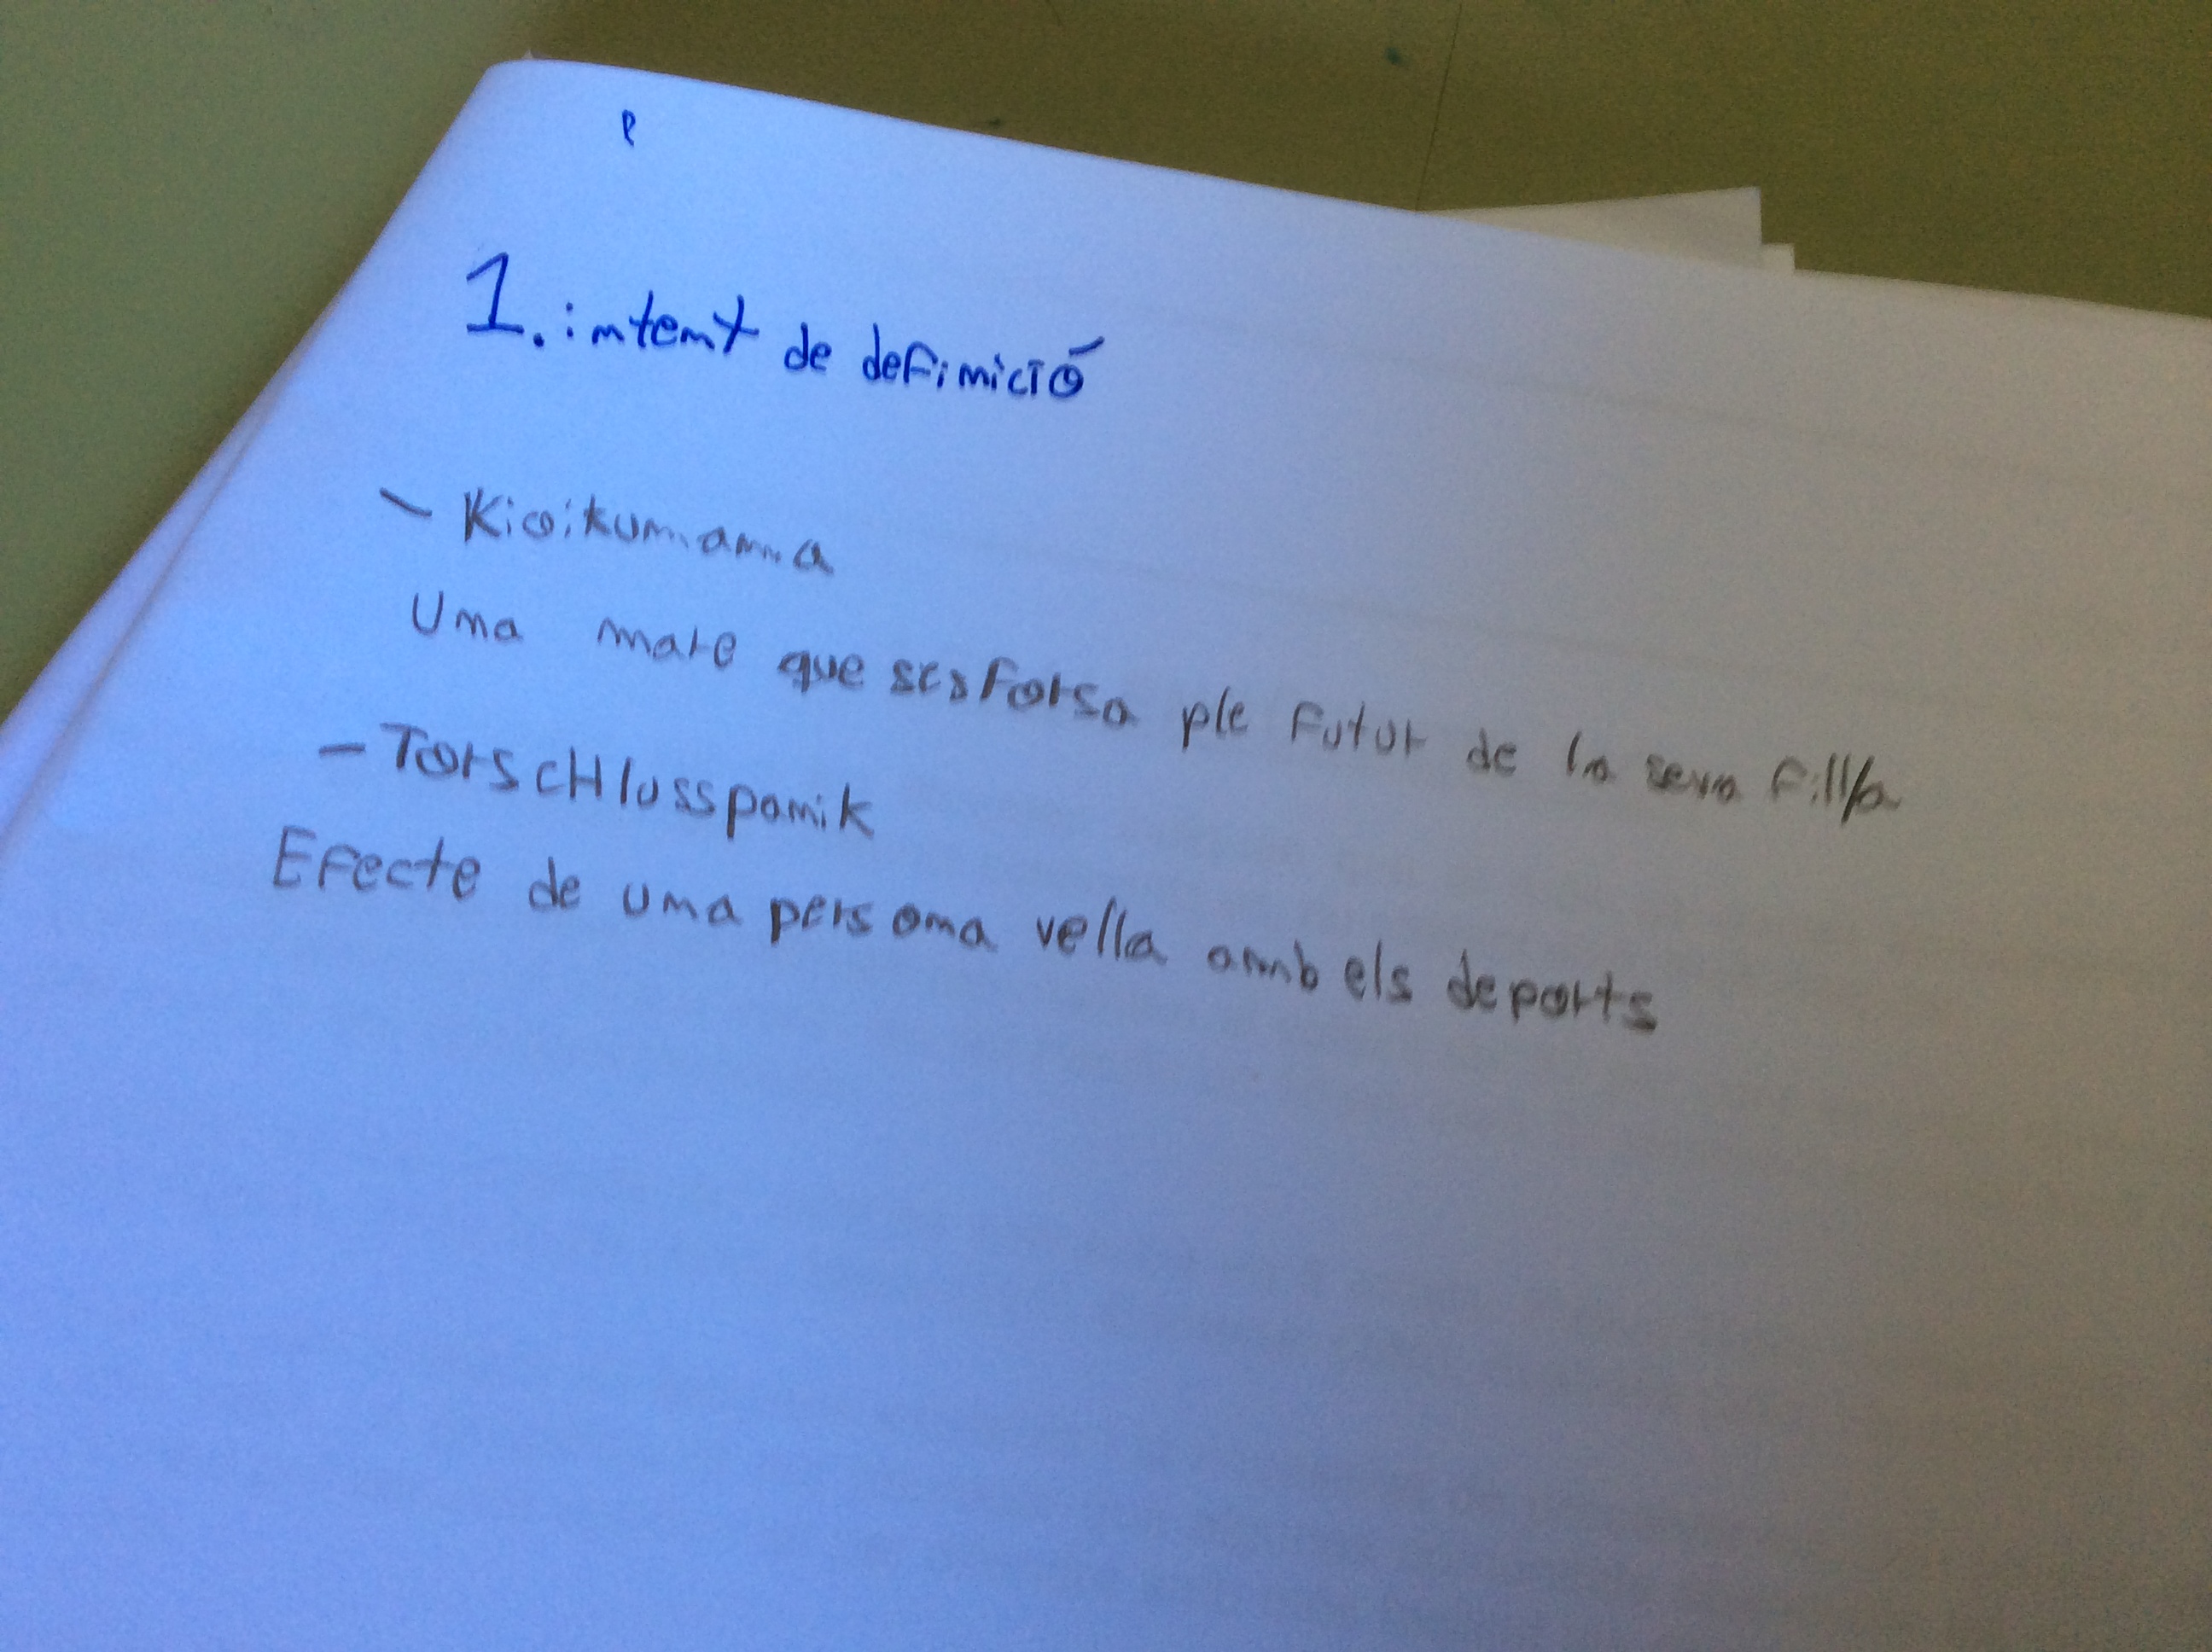 P
1. intent de definició
- Kioikumama
Una mare que sesforsa ple futur de la seva fill/a
- TorscHlusspanik
Efecte de una persona vella amb els deports